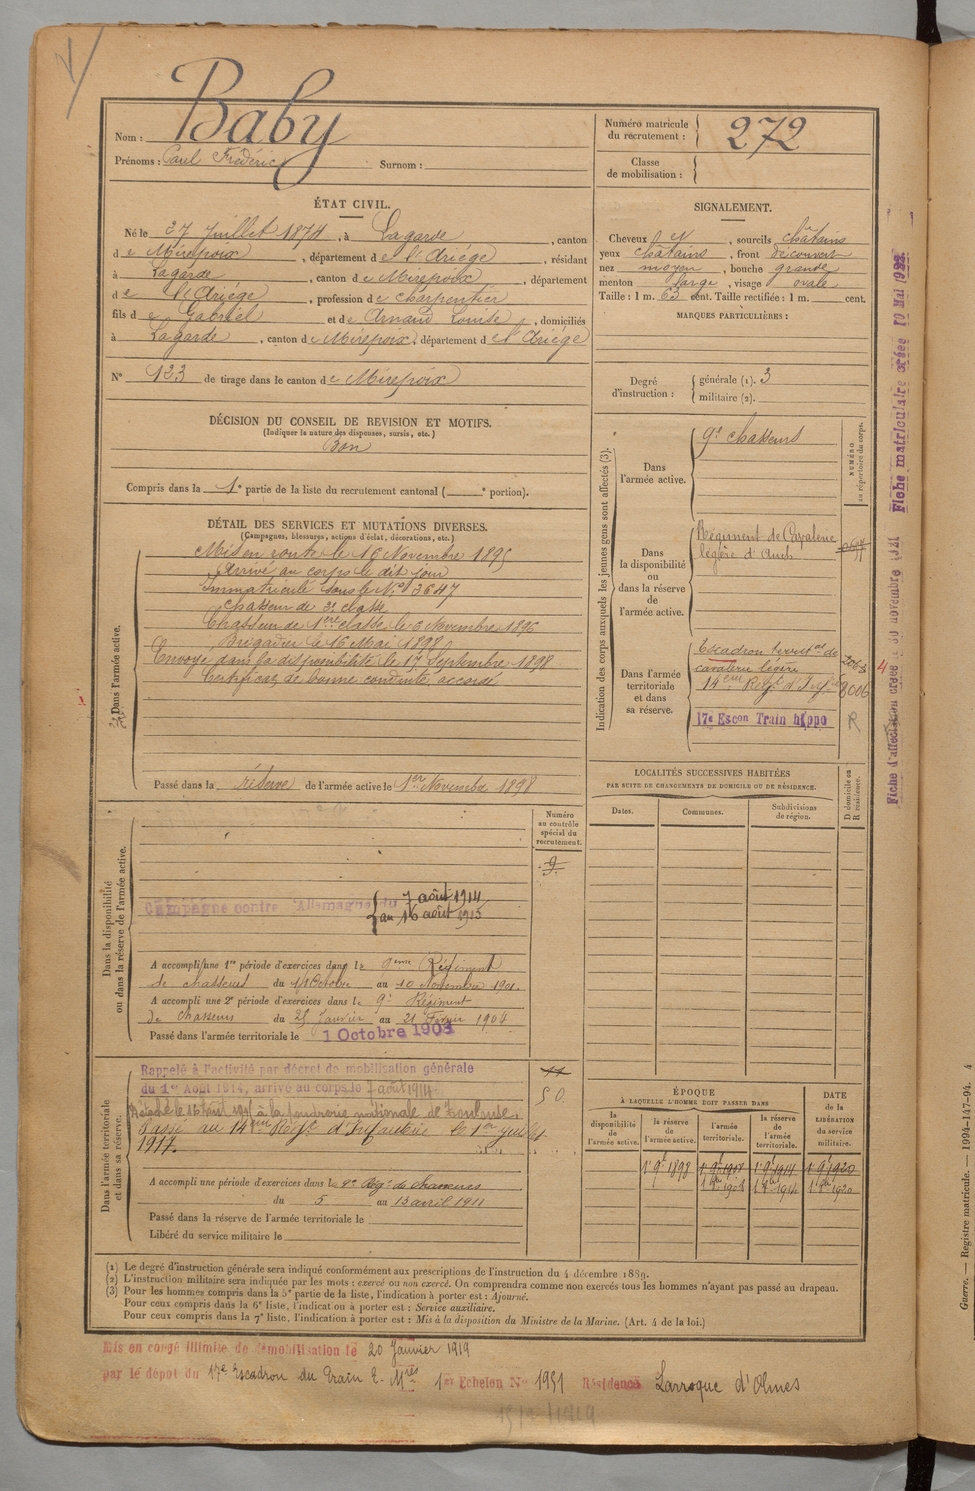 Nom : Baby
Prénoms : Paul Frédéric Surnom :
Numéro matricule
du recrutement : 272
Classe
de mobilisation :
ÉTAT CIVIL.
Né le 27 Juillet 1874, à Lagarde, canton
de Mirepoix, département de l'Ariège, résidant
à Lagarde, canton de Mirepoix, département
de l'Ariège, profession de charpentier
fils de Gabriel et de Arnaud Louise, domiciliés
à Lagarde, canton de Mirepoix, département de l'Ariège
N° 123 de tirage dans le canton de Mirepoix
SIGNALEMENT.
Cheveux N, sourcils châtains
yeux châtains, front découvert
nez moyen, bouche grande
menton large, visage ovale
Taille : 1 m. 63 cent. Taille rectifiée : 1 m. cent.
MARQUES PARTICULIÈRES :
Degré
d'instruction :
générale (1). 3
militaire (2).
DÉCISION DU CONSEIL DE REVISION ET MOTIFS.
(Indiquer la nature des dispenses, sursis, etc.)
Bon
Compris dans la 1e partie de la liste du recrutement cantonal ( e portion).
DÉTAIL DES SERVICES ET MUTATIONS DIVERSES.
(Campagnes, blessures, actions d'éclat, décorations, etc.)
Dans l'armée active.
Mis en route le 16 Novembre 1895
Arrivé au corps le dit jour
Immatriculé sous le N° 3647
Chasseur de 2e classe
Chasseur de 1ère classe le 6 Novembre 1896
Brigadier le 16 Mai 1898
Envoyé dans la disponibilité le 17 Septembre 1898
Certificat de bonne conduite accordé
Passé dans la réserve de l'armée active le 1er Novembre 1898
Indication des corps auxquels les jeunes gens sont affectés (3).
NUMÉRO
au répertoire du corps.
Dans
l'armée active.
9e chasseurs
Dans
la disponibilité
ou
dans la réserve
de
l'armée active.
Régiment de Cavalerie
légère d'Auch
Dans l'armée
territoriale
et dans
sa réserve.
Escadron territal de
cavalerie légère
14eme Regt d'Infie
8006
17e Escon Train hippo
R
Fiche d'affectation créée 30 novembre 1921 Fiche matriculaire créée 10 Mai 1923
LOCALITÉS SUCCESSIVES HABITÉES
PAR SUITE DE CHANGEMENTS DE DOMICILE OU DE RÉSIDENCE.
Dates.
Communes.
Subdivisions
de région.
D domicile ou
R résidence.
Numéro
au contrôle
spécial du
recrutement.
9
Dans la disponibilité
ou dans la réserve de l'armée active.
Campagne contre l'Allemagne du 7 août 1914
au 16 août 1915
A accompli une 1re période d'exercices dans le 9eme Régiment
de chasseurs du 14 Octobre au 10 Novembre 1901.
A accompli une 2e période d'exercices dans le 9e Régiment
de chasseurs du 25 Janvier au 21 Février 1904
Passé dans l'armée territoriale le 1 Octobre 1908
Dans l'armée territoriale
et dans sa réserve.
Rappelé à l'activité par décret de mobilisation générale
du 1er Août 1914, arrivé au corps le 7 août 1914
Détaché le 16 août 1915 à la fonderie nationale de Toulouse.
Passé au 14eme Regt d'Infanterie le 1er juillet
1917.
50.
A accompli une période d'exercices dans le 9e Regt de chasseurs
du 5 au 13 avril 1911
Passé dans la réserve de l'armée territoriale le
Libéré du service militaire le
ÉPOQUE
À LAQUELLE L'HOMME DOIT PASSER DANS
la
disponibilité
de
l'armée active.
la réserve
de
l'armée active.
l'armée
territoriale.
la réserve
de
l'armée
territoriale.
DATE
de la
LIBÉRATION
du service
militaire.
1 9bre 1898 1 9bre 1908 1 9bre 1914 1 9bre 1920
1 8bre 1908 1 8bre 1914 1 8bre 1920
(1) Le degré d'instruction générale sera indiqué conformément aux prescriptions de l'instruction du 4 décembre 1889.
(2) L'instruction militaire sera indiquée par les mots : exercé ou non exercé. On comprendra comme non exercés tous les hommes n'ayant pas passé au drapeau.
(3) Pour les hommes compris dans la 5e partie de la liste, l'indication à porter est : Ajourné.
Pour ceux compris dans la 6e liste, l'indication à porter est : Service auxiliaire.
Pour ceux compris dans la 7e liste, l'indication à porter est : Mis à la disposition du Ministre de la Marine. (Art. 4 de la loi.)
Mis en congé illimité de démobilisation le 20 Janvier 1919
par le dépôt du 17e Escadron du Train E. Mres 1er Echelon N° 1951 Résidence Larroque d'Olmes
Guerre. — Registre matricule. — 1994-147-94. 4